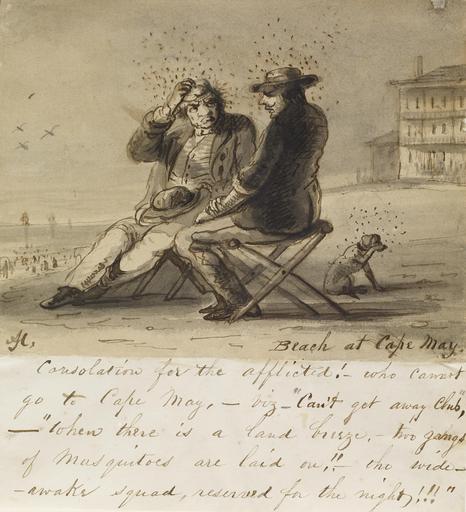 Beach at Cape May.
Consolation for the afflicted!- who cannot
go to Cape May, - viz - "Can't get away Club",
- "When there is a land breeze, - two gangs
of Musquitoes are laid on,!! - the wide-
-awake squad, reserved for the night,!!!"